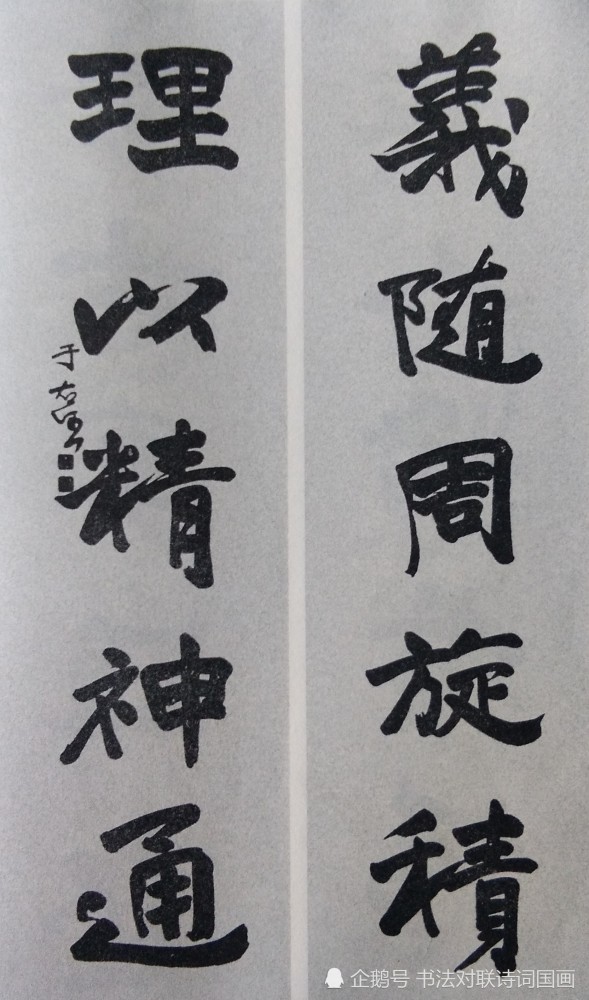 義随周旋積
理以精神通
于右任
企鹅号 书法对联诗词国画